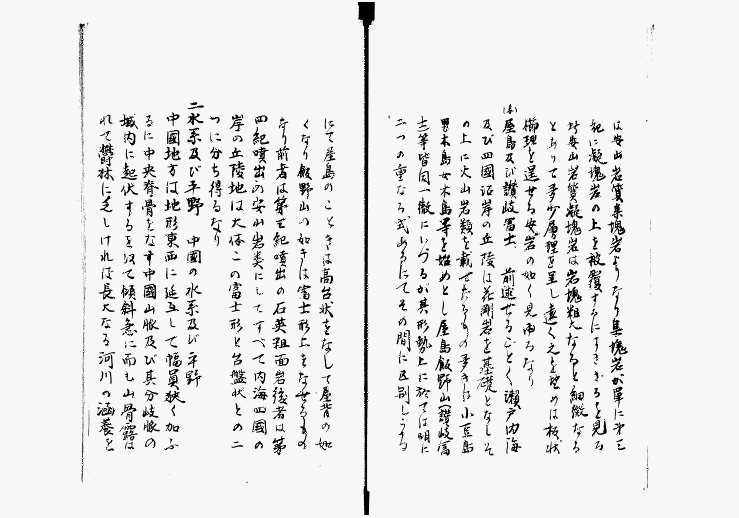 は安山岩質集塊岩よりなり集塊岩が單に第三
紀に凝塊岩の上を被覆するにすぎざるを見る
安山岩質凝塊岩は岩塊粗大なると細微なる
とありて多少層理を呈し遠くえを望めは板状
櫛理を呈せる安岩の如く見ゆるなり
屋島及び讃岐富士 前述せるごとく瀬戸内海
及び四國沿岸の丘陵は花剛岩を基礎となしそ
の上に火山岩類を載せたるもの多きは小豆島
男木島女木島等を始めとし屋島飯野山(讃岐富
士)等皆同一徹にいづるが其形勢上に於ては明に
二つの重なる式あるにてその間に区別しうる
にて屋島のことときは高台状をなして屋背の如
くなり飯野山の如きは富士形上をなせるもの
なり前者は第三紀噴出の石英粗面岩後者は第
四紀噴出の安山岩类にしてすべて内海四國の
岸の丘陵地は大体この富士形と台盤状との二
つに分ち得るなり
二水系及び平野 中國の水系及び平野
中國地方は地形東西に延亙して幅員狹く加ふ
るに中央脊骨をなす中國山脈及び其分岐脈の
域内に起伏するを以て傾斜急に而も山骨露は
れて鬱林に乏しければ長大なる河川の涵養を